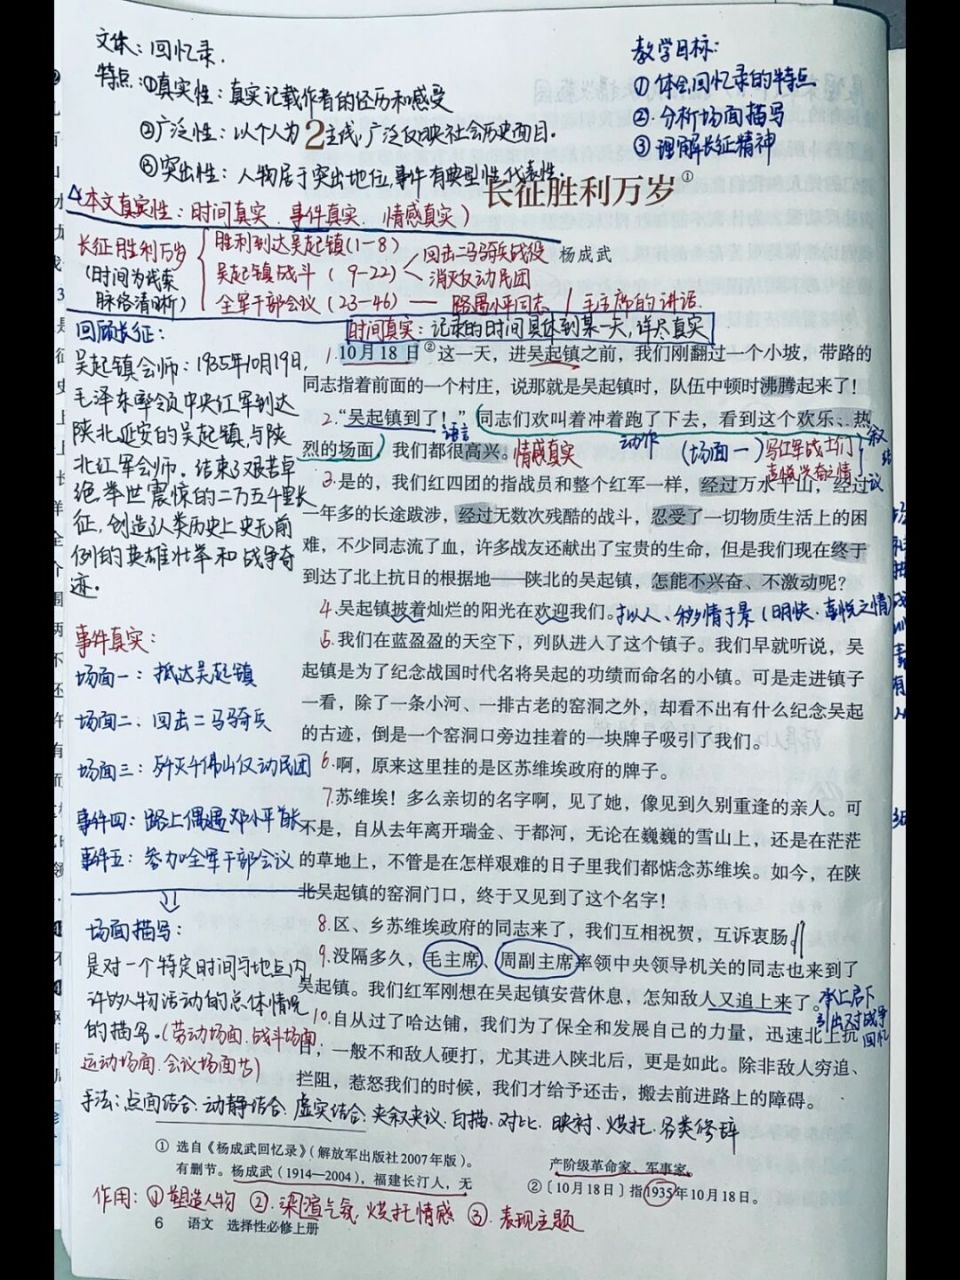 文体：回忆录.
特点：①真实性：真实记载作者的经历和感受
②广泛性：以个人为主线，广泛反映社会历史面目.
③突出性：人物居于突出地位，事件有典型性代表性.
教学目标：
① 体会回忆录的特点
②. 分析场面描写
③ 理解长征精神
2
长征胜利万岁①
杨成武
本文真实性：时间真实、事件真实、情感真实
长征胜利万岁
(时间为线索
脉络清晰)
胜利到达吴起镇(1-8)
吴起镇战斗(9-22)
回击二马骑兵战役
消灭反动民团
全军干部会议(23-46)——路遇小平同志 / 毛主席的讲话.
时间真实：记录的时间具体到某一天，详尽真实
回顾长征：
吴起镇会师：1935年10月19日,
毛泽东率领中央红军到达
陕北延安的吴起镇,与陕
北红军会师．结束了艰苦卓
绝举世震惊的二万五千里长
征，创造了人类历史上史无前
例的英雄壮举和战争奇
迹.
1.10月18日②这一天，进吴起镇之前，我们刚翻过一个小坡，带路的
同志指着前面的一个村庄，说那就是吴起镇时，队伍中顿时沸腾起来了！
2.“吴起镇到了！”同志们欢叫着冲着跑了下去，看到这个欢乐、热
烈的场面，我们都很高兴。
语言
情感真实
动作
(场面一)
写红军战士们
喜悦兴奋之情
3.是的，我们红四团的指战员和整个红军一样，经过万水千山，经过
一年多的长途跋涉，经过无数次残酷的战斗，忍受了一切物质生活上的困
难，不少同志流了血，许多战友还献出了宝贵的生命，但是我们现在终于
到达了北上抗日的根据地——陕北的吴起镇，怎能不兴奋、不激动呢？
4.吴起镇披着灿烂的阳光在欢迎我们。拟人、移情于景（明快、喜悦之情）
5.我们在蓝盈盈的天空下，列队进入了这个镇子。我们早就听说，吴
起镇是为了纪念战国时代名将吴起的功绩而命名的小镇。可是走进镇子
一看，除了一条小河、一排古老的窑洞之外，却看不出有什么纪念吴起
的古迹，倒是一个窑洞口旁边挂着的一块牌子吸引了我们。
6.啊，原来这里挂的是区苏维埃政府的牌子。
7.苏维埃！多么亲切的名字啊，见了她，像见到久别重逢的亲人。可
不是，自从去年离开瑞金、于都河，无论在巍巍的雪山上，还是在茫茫
的草地上，不管是在怎样艰难的日子里我们都惦念苏维埃。如今，在陕
北吴起镇的窑洞门口，终于又见到了这个名字！
8.区、乡苏维埃政府的同志来了，我们互相祝贺，互诉衷肠。
9.没隔多久，毛主席、周副主席率领中央领导机关的同志也来到了
吴起镇。我们红军刚想在吴起镇安营休息，怎知敌人又追上来了。
承上启下
引出对战争
10.自从过了哈达铺，我们为了保全和发展自己的力量，迅速北上抗
日，一般不和敌人硬打，尤其进入陕北后，更是如此。除非敌人穷追、
拦阻，惹怒我们的时候，我们才给予还击，搬去前进路上的障碍。
事件真实：
场面一：抵达吴起镇
场面二、回击二马骑兵
场面三：歼灭
反动民团
事件四：路上偶遇邓小平首长
事件五：参加全军干部会议
场面描写：
是对一个特定时间与地点内
许多人物活动的总体情况
的描写.(劳动场面、战斗场面
运动场面、会议场面等)
手法：点面结合、动静结合、虚实结合、夹叙夹议、白描、对比、映衬、烘托、各类修辞
① 选自《杨成武回忆录》（解放军出版社2007年版）。
有删节。杨成武（1914—2004），福建长汀人，无
产阶级革命家、军事家。
②〔10月18日〕指1935年10月18日。
作用：①塑造人物 ②.渲染气氛，烘托情感 ③.表现主题
6 语文 选择性必修上册